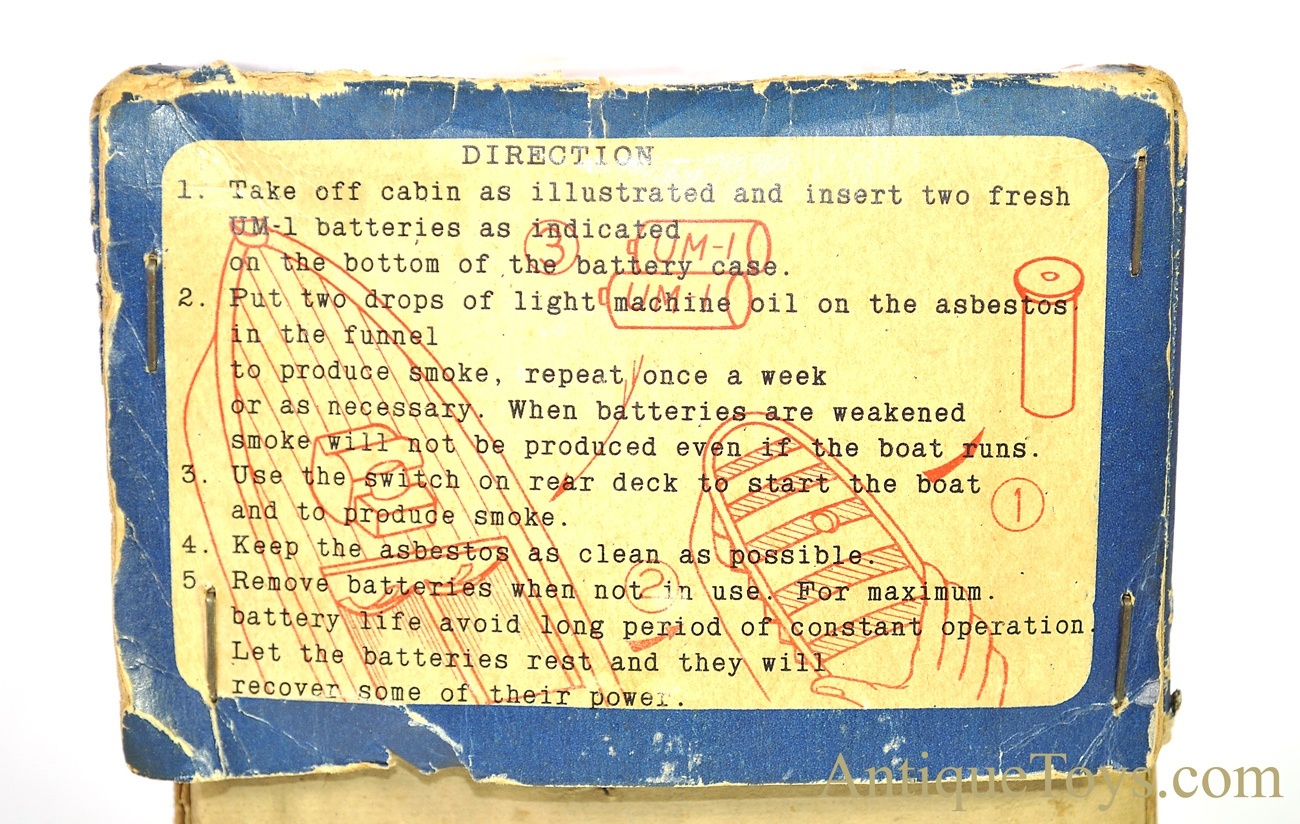 DIRECTION
1. Take off cabin as illustrated and insert two fresh
UM-1 batteries as indicated
on the bottom of the battery case.
2. Put two drops of light machine oil on the asbestos
in the funnel
to produce smoke, repeat once a week
or as necessary. When batteries are weakened
smoke will not be produced even if the boat runs.
3. Use the switch on rear deck to start the boat
and to produce smoke.
4. Keep the asbestos as clean as possible.
5. Remove batteries when not in use. For maximum.
battery life avoid long period of constant operation.
Let the batteries rest and they will
recover some of their power.
3
UM-1
UM-1
1
2
AntiqueToys.com